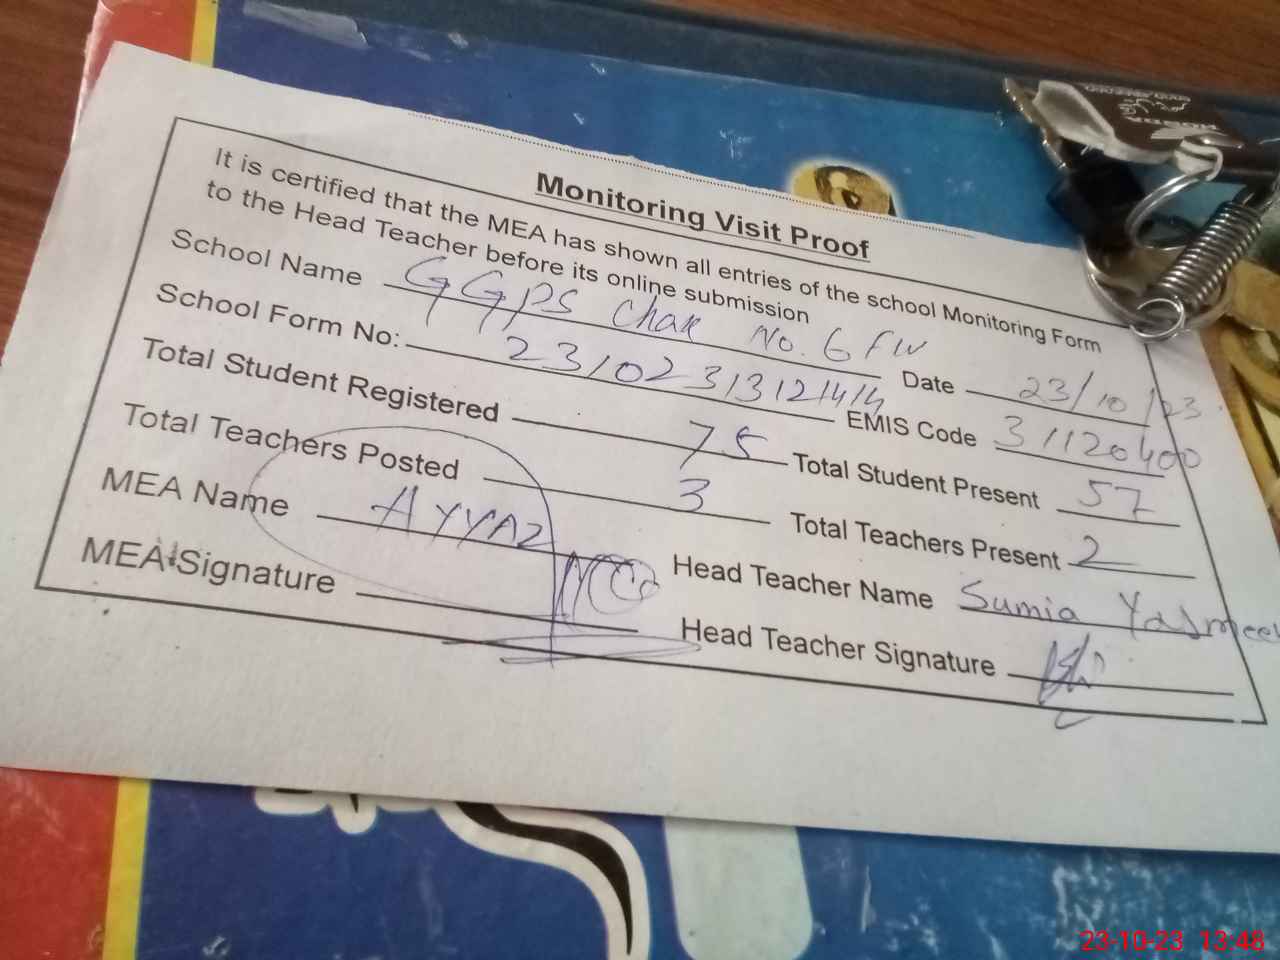 Monitoring Visit Proof
It is certified that the MEA has shown all entries of the school Monitoring Form
to the Head Teacher before its online submission
School Name GGPS Chak No. 6 FW Date 23/10/23
School Form No: 23102313121414 EMIS Code 31120400
Total Student Registered 75 Total Student Present 57
Total Teachers Posted 3 Total Teachers Present 2
MEA Name AYYAZ Head Teacher Name Sumia Yasmeen
MEA Signature Head Teacher Signature
23-10-23 13:48